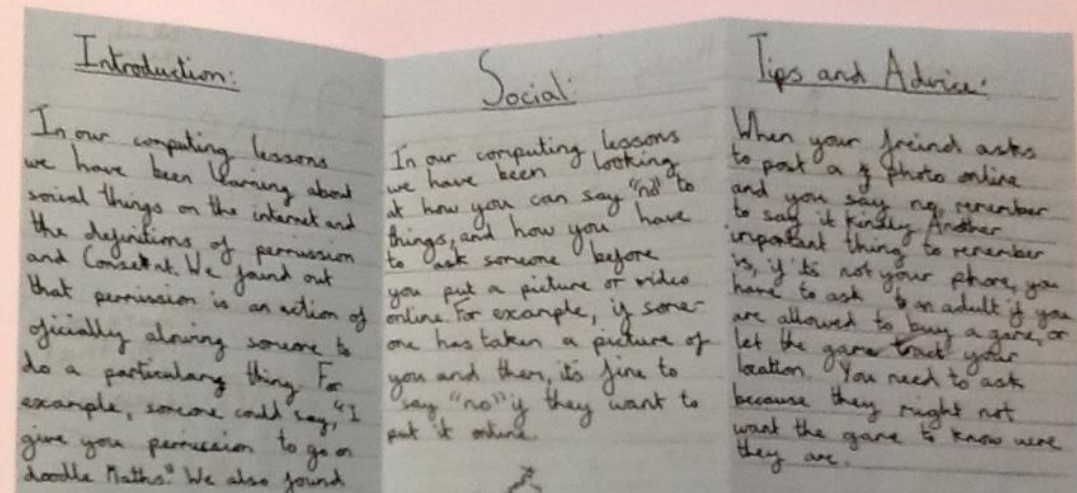 Introduction:
In our computing lessons
we have been learning about
social things on the internet and
the definitions of permission
and Consent. We found out
that permission is an action of
oficially alowing someone to
do a particularly thing. For
example, someone could say, "I
give you permission to go on
doodle Maths." We also found
Social:
In our computing lessons
we have been looking
at how you can say "no" to
things, and how you have
to ask someone before
you put a picture or video
online. For example, if some-
one has taken a picture of
you and them, its fine to
say "no" if they want to
put it online.
Tips and Advice:
When your freind asks
to post a photo online
and you say no, remember
to say it kindly. Another
important thing to remember
is, if its not your phone, you
have to ask an adult if you
are allowed to buy a game, or
let the game track your
location. You need to ask
because they might not
want the game to know were
they are.